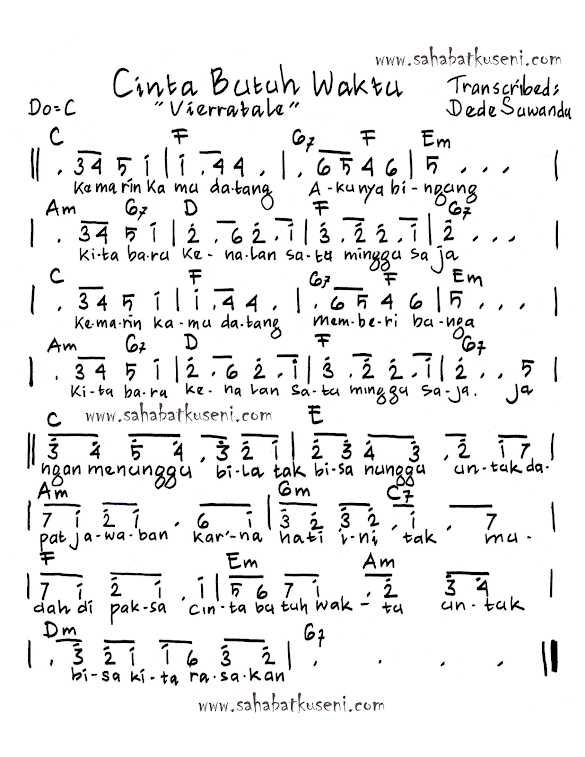 www.sahabatkuseni.com
Cinta Butuh Waktu
Transcribed:
Do=C
"Vierratale"
Dede Suwandu
C F G7 F Em
|| . 34 5 i | i . 44 . | . 65 4 6 | 5 . . . |
Kemarin Ka mu da-tang A-kunya bi-ngung
Am G7 D F G7
| . 34 5 i | 2 . 6 2 . i | 3 . 2 2 . i | 2 . . . |
ki-ta ba-ru ke-nalan sa-tu minggu sa ja
C F G7 F Em
| . 34 5 i | i . 44 . | . 65 4 6 | 5 . . . |
Ke-ma-rin ka-mu da-tang mem-be-ri bu-nga
Am G7 D F G7
| . 34 5 i | 2 . 6 2 . i | 3 . 2 2 . i | 2 . . 5 |
Ki-ta ba-ru ke-na lan sa-tu minggu sa-ja. ja
C www.sahabatkuseni.com E
|| 3 4 5 4 . 3 2 i | 2 3 4 3 . 2 i 7 |
ngan menunggu bi-la tak bi-sa nunggu un-tuk da-
Am Gm C7
| 7 i 2 i . 6 i | 3 2 3 2 . i . 7 |
pat ja-wa-ban kar'-na hati i-ni tak mu-
F Em Am
| 7 i 2 i . i | 5 6 7 i . 2 3 4 |
dah di pak-sa cin-ta bu tuh wak-tu un-tuk
Dm G7
| . 3 2 i i 6 3 2 | . . . . ||
bi-sa ki-ta ra-sa-kan
www.sahabatkuseni.com